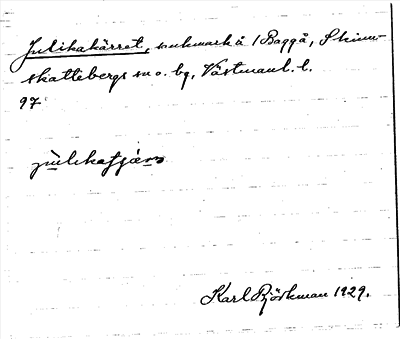 Julikakärret, sankmark å 1 Baggå, Skinn-
skattebergs sn o. bg, Västmanl. l.
97
julikatjärn
Karl Björkman 1929.